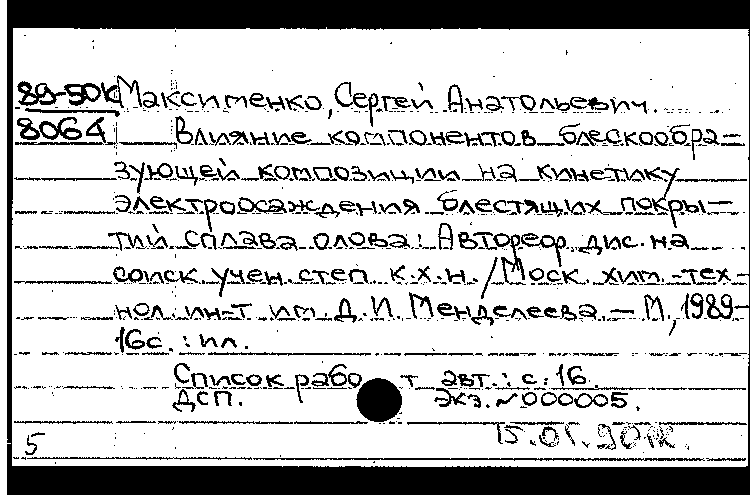 89-50К Максименко, Сергей Анатольевич.
8064 Влияние компонентов блескообра-
зующей композиции на кинетику
электроосаждения блестящих покры-
тий сплава олова: Автореф. дис. на
соиск. учен. степ. к.х.н. / Моск. хим.-тех-
нол. ин-т им. Д. И. Менделеева. – М., 1989–
16с. : ил.
Список рабо т авт.: с. 16.
ДСП. Экз. №000005.
5